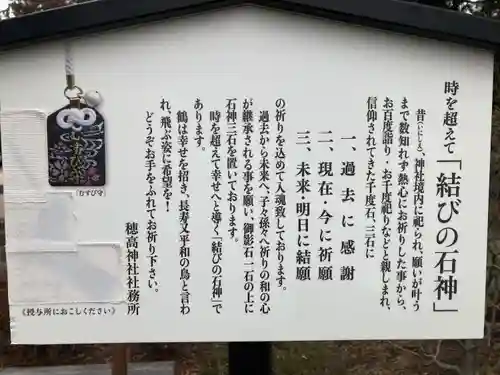 時を超えて「結びの石神」
昔(いにしえ)、神社境内に祀られ、願いが叶う
まで数知れず熱心にお祈りした事から、
お百度詣り・お千度祀りなどと親しまれ、
信仰されてきた千度石、三石に
一、過去に感謝
二、現在・今に祈願
三、未来・明日に結願
の祈りを込めて入魂致しております。
過去から未来へ、子々孫々へ祈りの和の心
が継承される事を願い、御影石一石の上に
石神三石を置いております。
時を超えて幸せへと導く、「結びの石神」で
あります。
鶴は幸せを招き、長寿又平和の鳥と言わ
れ、飛ぶ姿に希望を!
どうぞお手をふれてお祈り下さい。
穂高神社社務所
むすび守
「むすび守」
《授与所にお越しください》